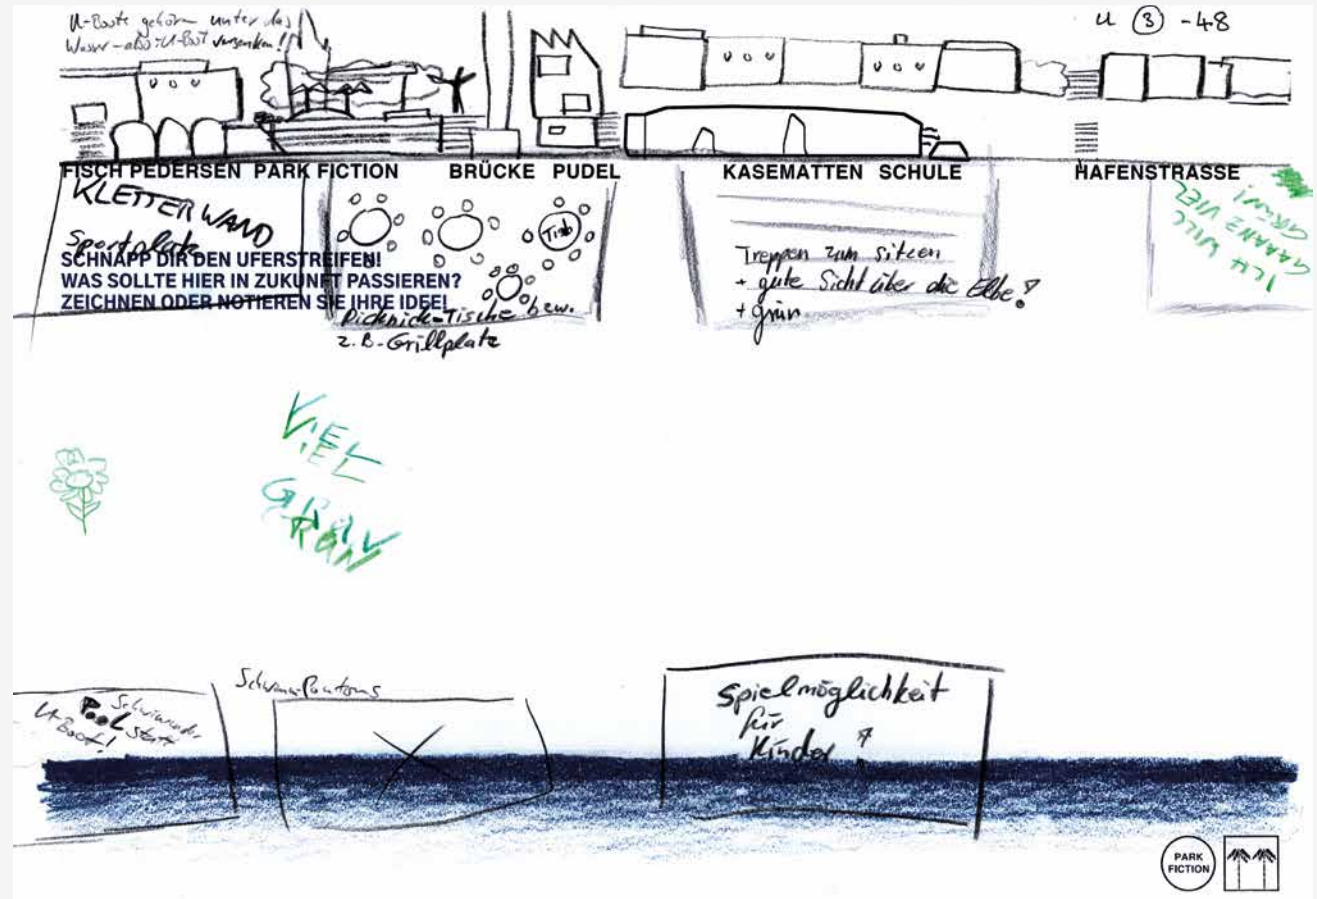 U-Boote gehören unter das
Wasser - also: U-Boot versenken!
U 3 -48
FISCH PEDERSEN PARK FICTION BRÜCKE PUDEL KASEMATTEN SCHULE HAFENSTRASSE
KLETTERWAND
Sportplatz
SCHNAPP DIR DEN UFERSTREIFEN!
WAS SOLLTE HIER IN ZUKUNFT PASSIEREN?
ZEICHNEN ODER NOTIEREN SIE IHRE IDEE!
Tisch
Picknick-Tische bzw.
z.B. Grillplatz
Treppen zum sitzen
+ gute Sicht über die Elbe!
+ grün
ICH WILL
GAAANZ VIEL
GRÜN!
VIEL
VIEL
GRÜN
Schwimmender
Pool statt
U-Boot!
Schwimm-Pontons
Spielmöglichkeit
für
Kinder
PARK
FICTION